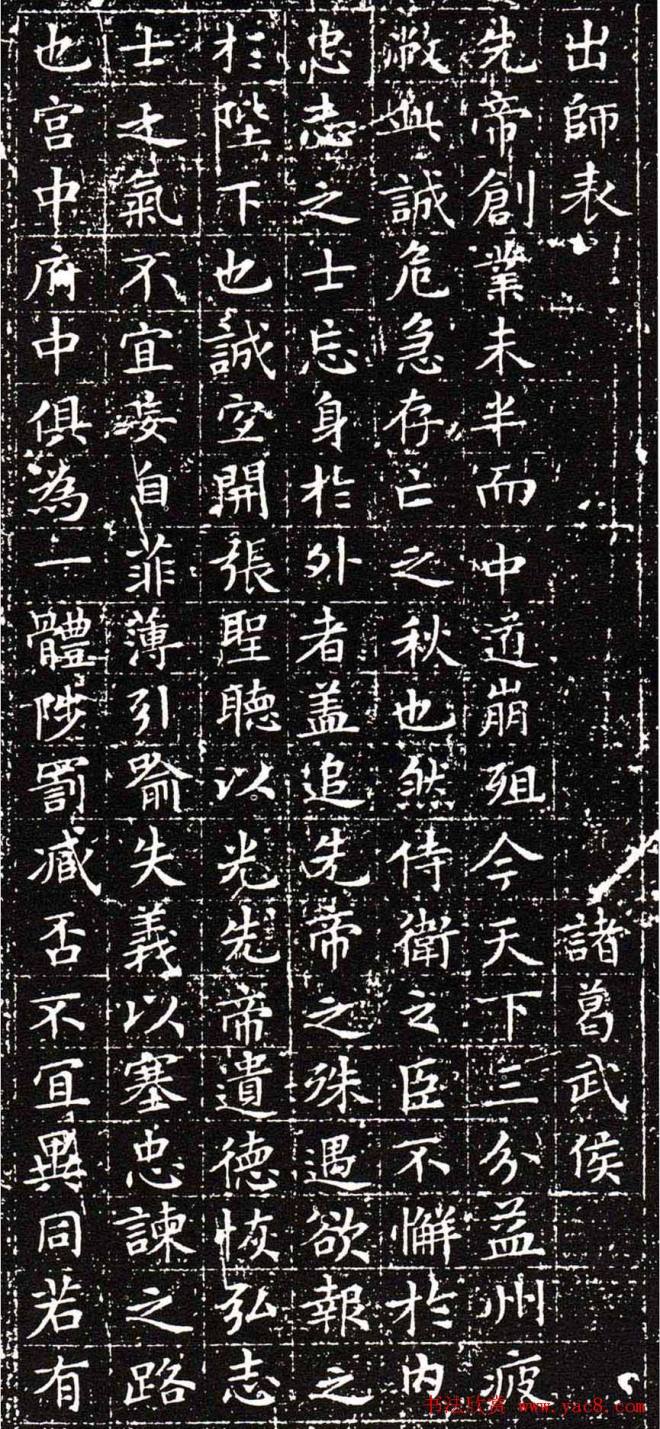 出師表 諸葛武侯
先帝創業未半而中道崩殂今天下三分益州疲
敝此誠危急存亡之秋也然侍衛之臣不懈於内
忠志之士忘身於外者盖追先帝之殊遇欲報之
於陛下也誠宜開張聖聽以光先帝遺德恢弘志
士之氣不宜妄自菲薄引喻失義以塞忠諫之路
也宮中府中俱為一體陟罰臧否不宜異同若有
书法欣赏 www.yac8.com